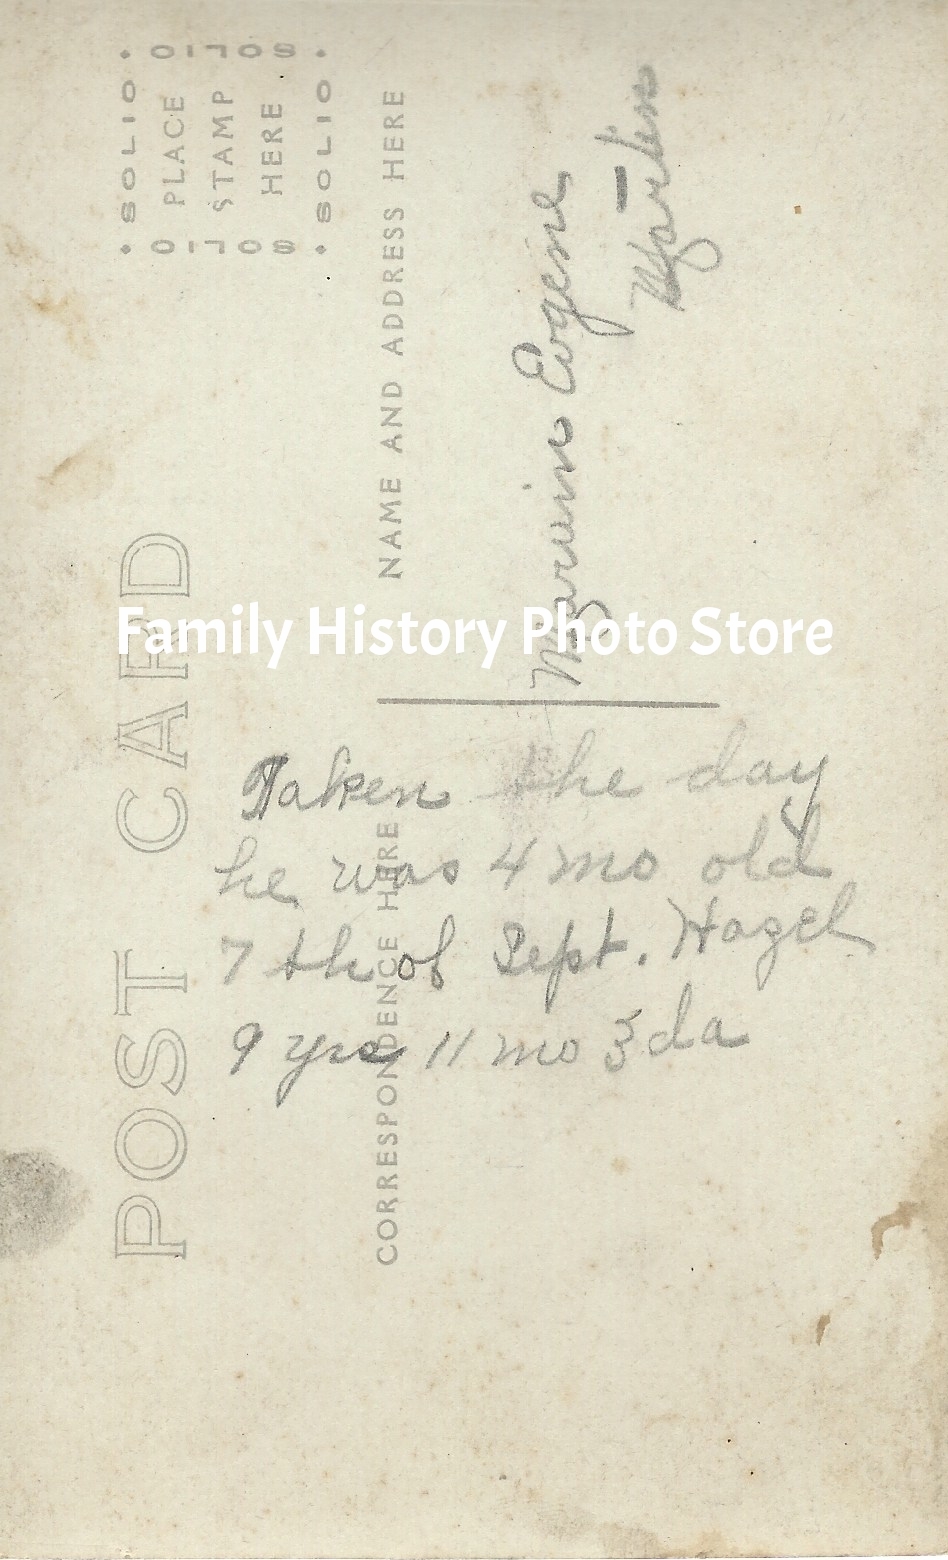 SOLIO
SOLIO
PLACE
STAMP
HERE
SOLIO
SOLIO
POST CARD
NAME AND ADDRESS HERE
CORRESPONDENCE HERE
Marvin Eugene
Martin
Family History Photo Store
Taken the day
he was 4 mo old
7 th of Sept. Hazel
9 yrs 11 mo 3 da